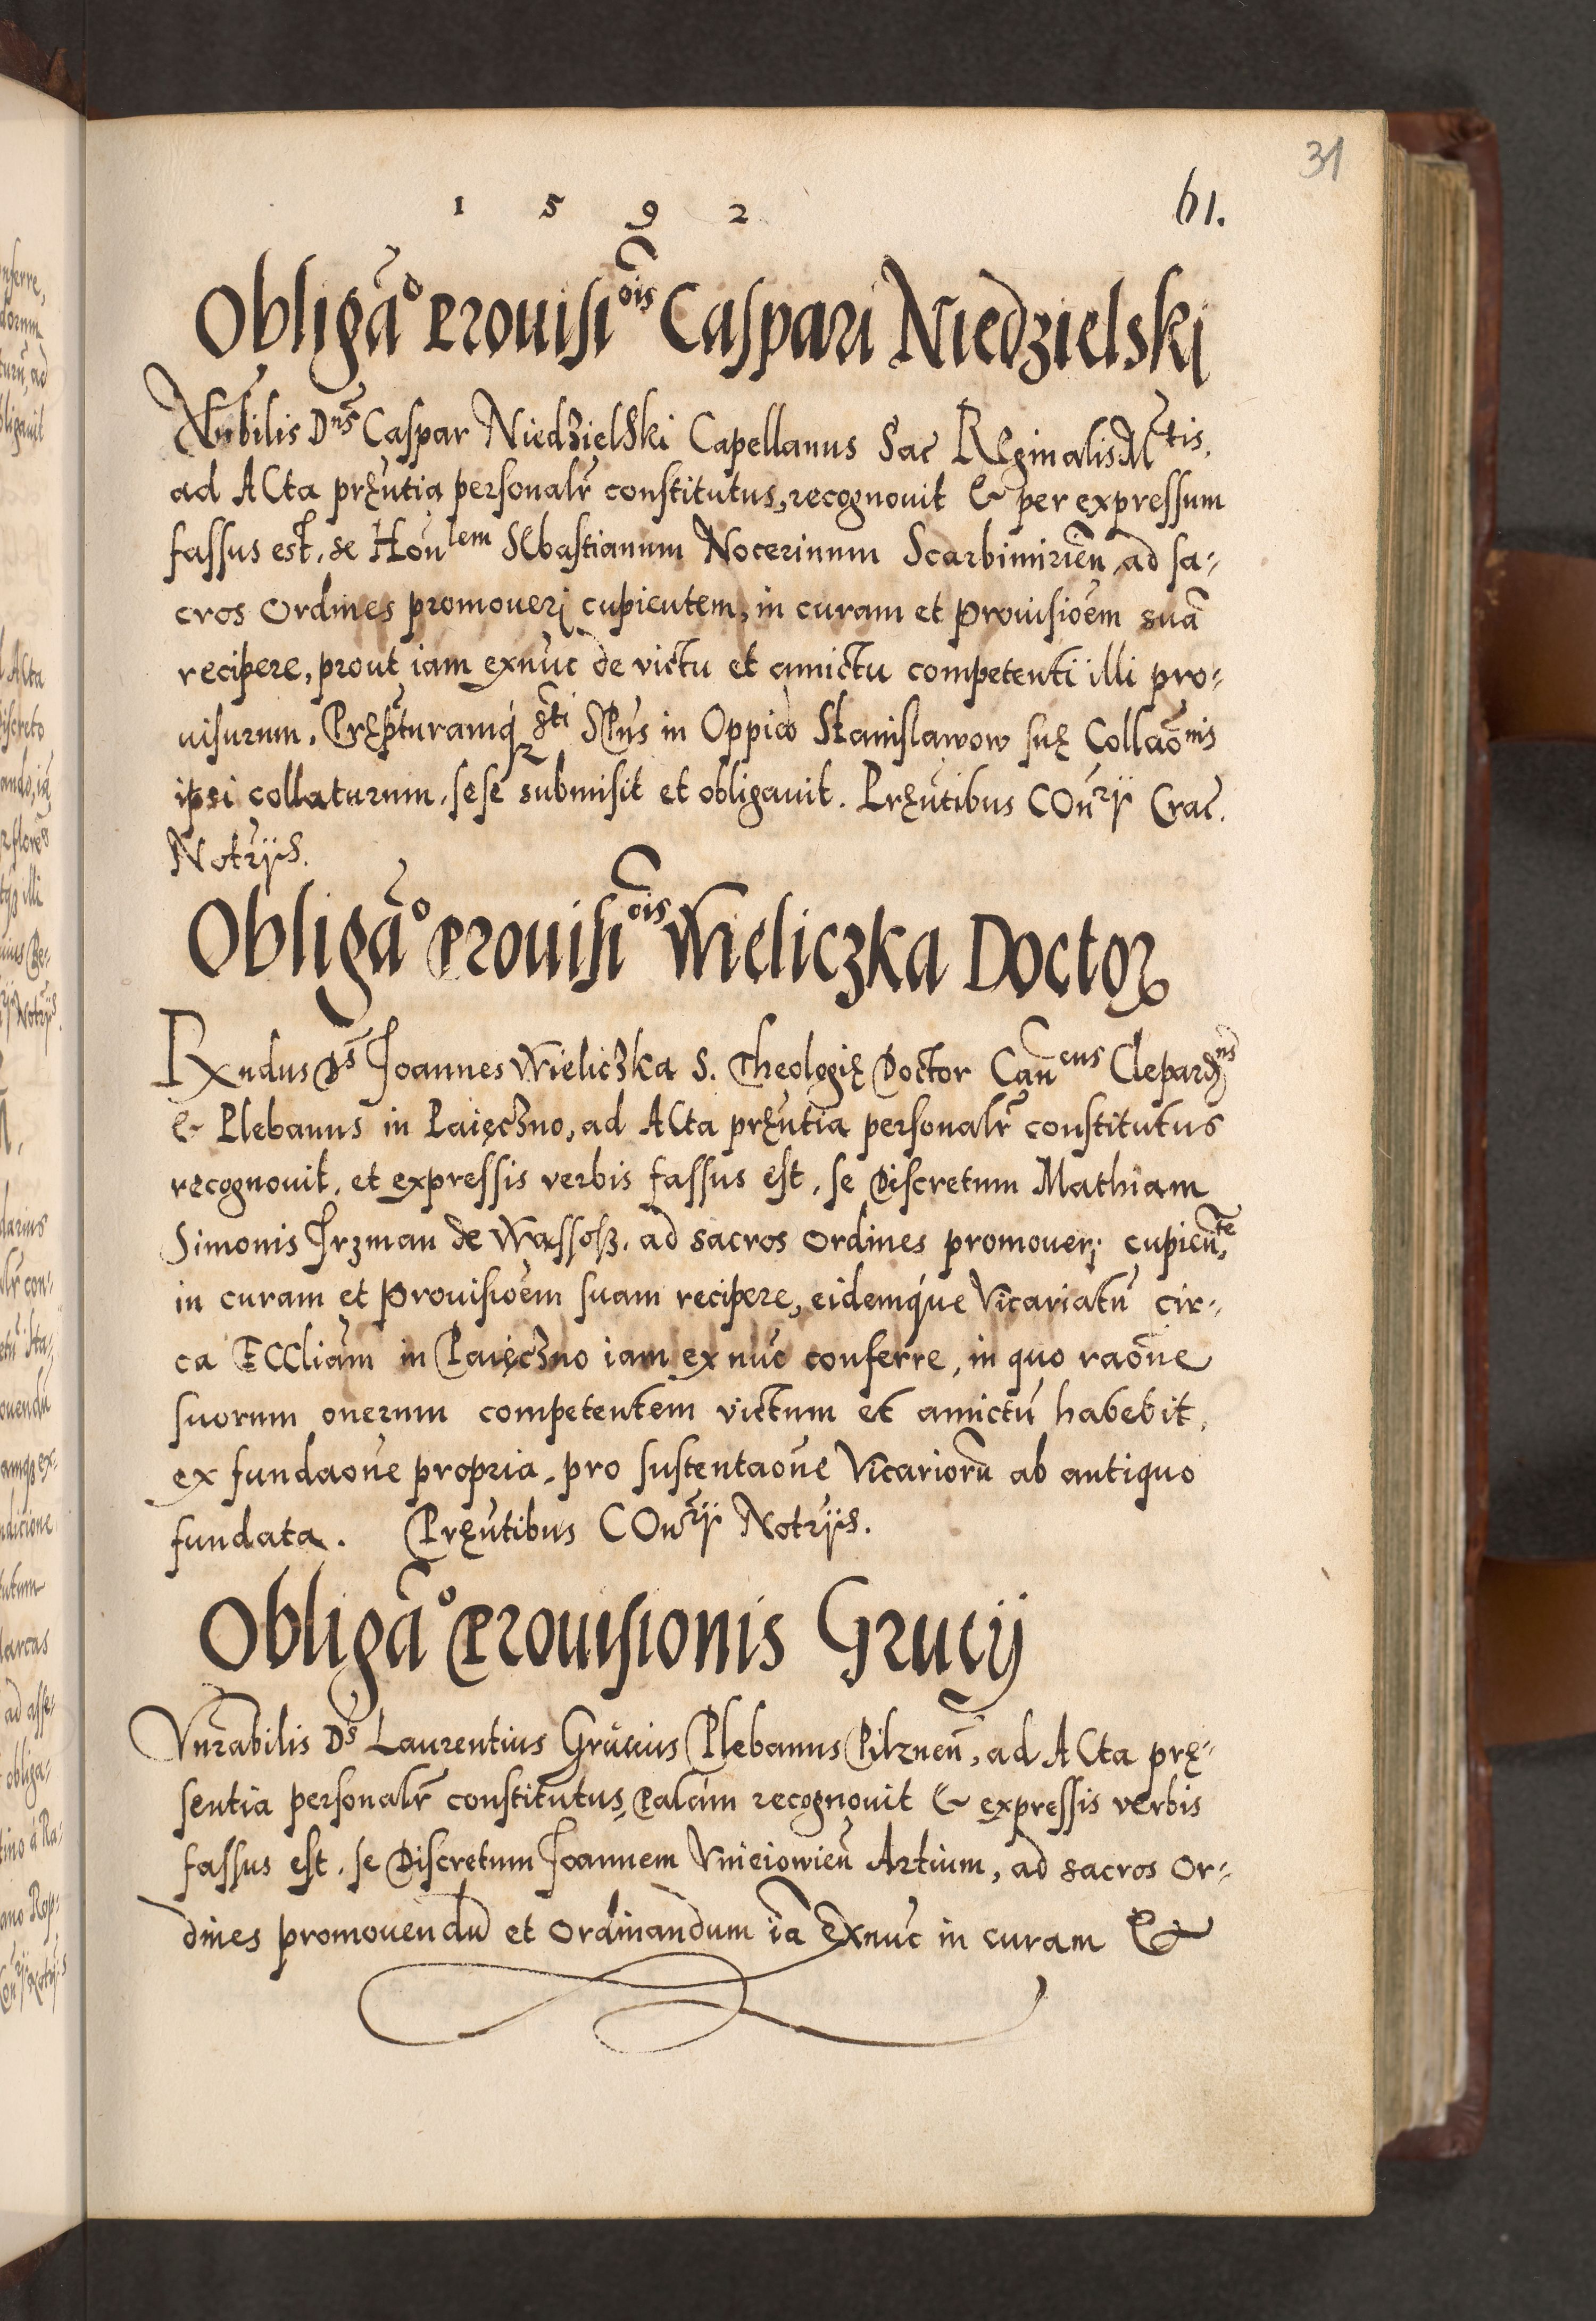 31
1 5 9 2
61.
Obligã° Prouisi^õis Caspari Niedzielski
Nobilis Dñs Caspar Niedzielski Capellanus Sac Reginalis M^tis.
ad Acta pręñtia personalr̃ constitutus, recognouit & per expressum
fassus est, se Hoñlem Sebastianum Nocerinum Scarbimirień, ad sa-
cros Ordines promoueri cupientem, in curam et Prouisioẽm suã
recipere, prout iam exnũc de victu et amictu competenti illi pro-
uisurum. Pręp̃turamq́ S^ti Sp̃us in Oppido Stanislawow suę Collaõnis
ipsi collaturum, sese submisit et obligauit. Pręñtibus Coñrij Crac̃.
Notrijs.
Obligã° Prouisi^õis Wieliczka Doctor
Rx̃ndus Ds̃ Joannes Wieliczka S. Theologię Doctor Cañcus Clepardñs
& Plebanus in Paięczno, ad Acta pręñtia personalr̃ constitutus
recognouit, et expressis verbis fassus est, se Discretum Mathiam
Simonis Jrzman de Wassosz, ad sacros Ordines promoueri cupieñte
in curam et Prouisioẽm suam recipere, eidemq́ue Vicariatũ cir-
ca Eccliãm in Paięczno iam ex nũc conferre, in quo raõne
suorum onerum competentem victum et amictũ habebit,
ex fundaõne propria, pro sustentaõne Vicariorũ ab antiquo
fundata. Pręñtibus Coñrij Notrijs.
Obligã° Prouisionis Grucij
Vnr̃abilis Ds̃ Laurentius Grucius Plebanus Pilzneñ, ad Acta prę-
sentia personalr̃ constitutus, Palám recognouit & expressis verbis
fassus est, se Discretum Joannem Vnieiowieñ Artium, ad sacros Or-
dines promouendũ et Ordinandum iã exnũc in curam &